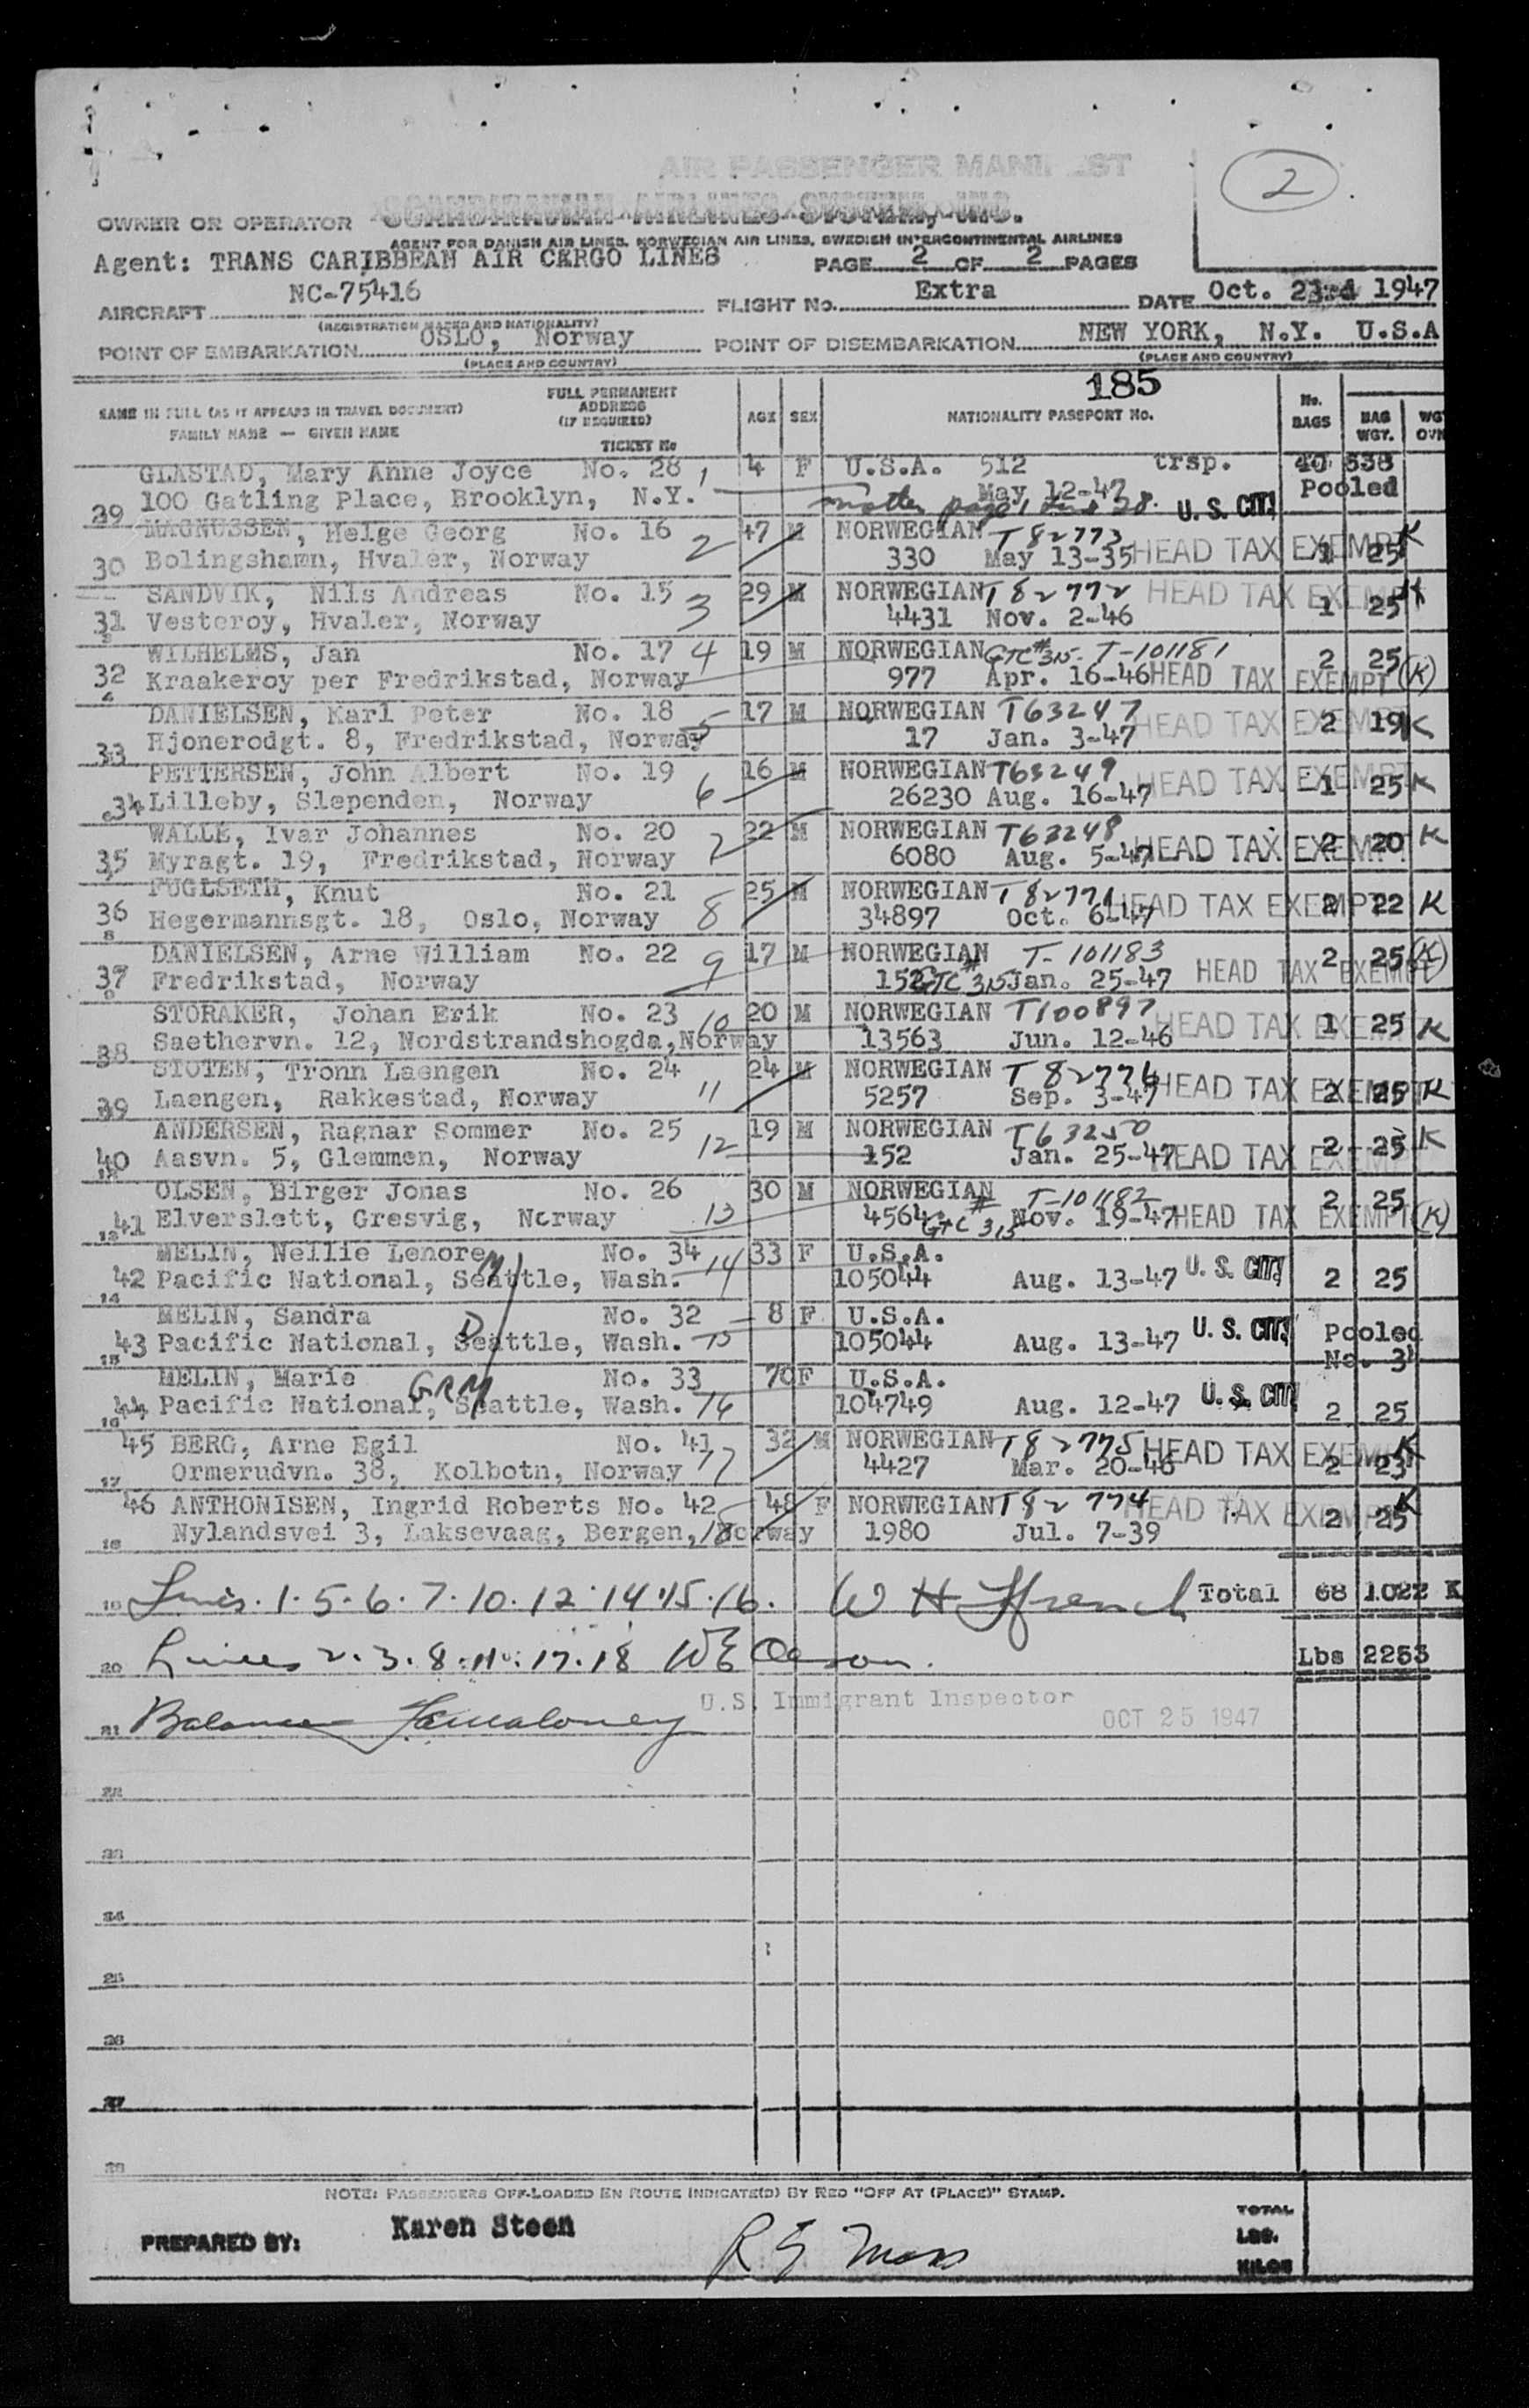 AIR PASSENGER MANIFEST
2
SCANDINAVIAN AIRLINES SYSTEM, INC.
OWNER OR OPERATOR
AGENT FOR DANISH AIR LINES, NORWEGIAN AIR LINES, SWEDISH INTERCONTINENTAL AIRLINES
Agent: TRANS CARIBBEAN AIR CARGO LINES PAGE 2 OF 2 PAGES
AIRCRAFT NC-75416 FLIGHT No. Extra DATE Oct. 23rd 1947
(REGISTRATION MARKS AND NATIONALITY)
POINT OF EMBARKATION OSLO, Norway POINT OF DISEMBARKATION NEW YORK, N.Y. U.S.A
(PLACE AND COUNTRY) (PLACE AND COUNTRY)
185
NAME IN FULL (AS IT APPEARS IN TRAVEL DOCUMENT) FAMILY NAME — GIVEN NAME
FULL PERMANENT ADDRESS (IF REQUIRED) TICKET No
AGE SEX NATIONALITY PASSPORT No. No. BAGS BAG WGT. WGT OVR
GLASTAD, Mary Anne Joyce No. 28 1 4 F U.S.A. 512 trsp. 40 538
29 100 Gatling Place, Brooklyn, N.Y. May 12-47 Pooled
mother page 1 line 28. U.S. CIT.
MAGNUSSEN, Helge Georg No. 16 2 47 M NORWEGIAN T 82773
30 Bolingshamn, Hvaler, Norway 330 May 13-35 HEAD TAX EXEMPT 1 25 K
SANDVIK, Nils Andreas No. 15 3 29 M NORWEGIAN T 82772 HEAD TAX EXEMPT
31 Vesteroy, Hvaler, Norway 4431 Nov. 2-46 1 25 K
WILHELMS, Jan No. 17 4 19 M NORWEGIAN GTC #315. T-101181 2 25
32 Kraakeroy per Fredrikstad, Norway 977 Apr. 16-46 HEAD TAX EXEMPT (K)
DANIELSEN, Karl Peter No. 18 5 17 M NORWEGIAN T63247
33 Hjonerodgt. 8, Fredrikstad, Norway 17 Jan. 3-47 HEAD TAX EXEMPT 2 19 K
PETTERSEN, John Albert No. 19 6 16 M NORWEGIAN T63249
34 Lilleby, Slependen, Norway 26230 Aug. 16-47 HEAD TAX EXEMPT 1 25 K
WALLE, Ivar Johannes No. 20 7 22 M NORWEGIAN T63248
35 Myragt. 19, Fredrikstad, Norway 6080 Aug. 5-47 HEAD TAX EXEMPT 2 20 K
FUGLSETH, Knut No. 21 8 25 M NORWEGIAN T 82771
36 Hegermannsgt. 18, Oslo, Norway 34897 Oct. 6-47 HEAD TAX EXEMPT 2 22 K
DANIELSEN, Arne William No. 22 9 17 M NORWEGIAN T-101183 2 25 (K)
37 Fredrikstad, Norway 152 GTC #315 Jan. 25-47 HEAD TAX EXEMPT
STORAKER, Johan Erik No. 23 10 20 M NORWEGIAN T100897
38 Saethervn. 12, Nordstrandshogda, Norway 13563 Jun. 12-46 HEAD TAX EXEMPT 1 25 K
STOTEN, Tronn Laengen No. 24 11 24 M NORWEGIAN T 82776
39 Laengen, Rakkestad, Norway 5257 Sep. 3-47 HEAD TAX EXEMPT 2 25 K
ANDERSEN, Ragnar Sommer No. 25 12 19 M NORWEGIAN T63250
40 Aasvn. 5, Glemmen, Norway 152 Jan. 25-47 HEAD TAX EXEMPT 2 25 K
OLSEN, Birger Jonas No. 26 13 30 M NORWEGIAN T-101182 2 25
41 Elverslett, Gresvig, Norway 4564 GTC #315 Nov. 19-47 HEAD TAX EXEMPT (K)
MELIN, Nellie Lenore No. 34 14 33 F U.S.A.
42 Pacific National, Seattle, Wash. M 105044 Aug. 13-47 U.S. CIT. 2 25
MELIN, Sandra No. 32 15 8 F U.S.A.
43 Pacific National, Seattle, Wash. D 105044 Aug. 13-47 U.S. CIT. Pooled No. 34
MELIN, Marie No. 33 16 70 F U.S.A.
44 Pacific National, Seattle, Wash. GRM 104749 Aug. 12-47 U.S. CIT 2 25
45 BERG, Arne Egil No. 41 17 32 M NORWEGIAN T 82775 HEAD TAX EXEMPT K
Ormerudvn. 38, Kolbotn, Norway 4427 Mar. 20-46 2 23
46 ANTHONISEN, Ingrid Roberts No. 42 18 48 F NORWEGIAN T82774 HEAD TAX EXEMPT K
Nylandsvei 3, Laksevaag, Bergen, Norway 1980 Jul. 7-39 2 25
19 Lines. 1. 5. 6. 7. 10. 12. 14. 15. 16. W H Ffrench Total 68 1022 K
20 Lines 2. 3. 8. 11. 17. 18 WE Lbs 2253
21 Balance
U.S. Immigrant Inspector OCT 25 1947
22
23
24
25
26
27
28
NOTE: PASSENGERS OFF-LOADED EN ROUTE INDICATE(D) BY RED "OFF AT (PLACE)" STAMP.
PREPARED BY: Karen Steen
R G Moss
TOTAL
LBS.
KILOS